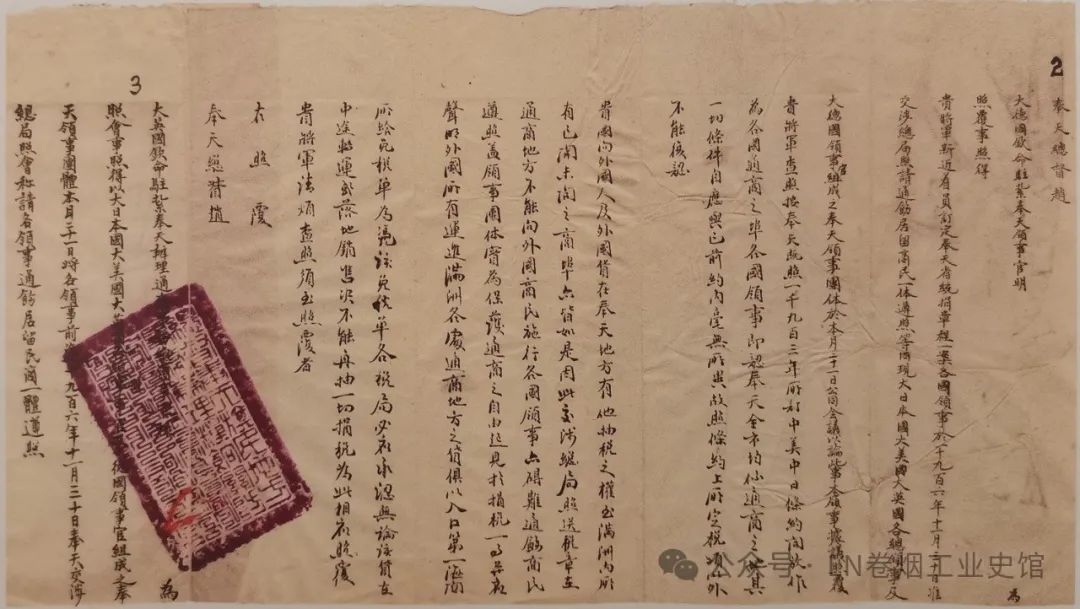 2
奉天總督趙
大德國欽命駐紮奉天領事官明 為
照覆事照得
貴將軍新近着員訂定奉天省統捐章程一案各國領事於一千九百六年十一月三十日准
交涉總局照請通飭居留商民一体遵照等因現大日本國大美國大英國各總領事及
大德國領事官組成之奉天領事團体於本月二十一日公同會議以論此事各領事擬請照覆
貴將軍查照按奉天既照一千九百三年所訂中美中日條約開放作
為各國通商之埠各國領事即認奉天全市均係通商之埠其
一切條件自應與已前約內毫無所異故照條約上所定稅項外
不能複認
貴國向外國人及外國貨在奉天地方有他抽稅之權至滿洲內所
有已開未開之商埠亦皆如是因此交涉總局照送稅章在
通商地方不能向外國商民施行各國領事亦碍難通飭商民
遵照蓋領事團体實為保護通商之自由起見於捐稅一事應有
聲明外國所有運進滿洲各處通商地方之貨俱以入口第一海關
所給免稅單為憑該免稅單各稅局必有承認無論該貨在
中途轉運或落地銷售決不能再抽一切捐稅為此相應照覆
貴將軍法煩查照須至照覆者
右照覆
奉天總督趙
3
大英國欽命駐紮奉天辦理通 為
照會事照得以大日本國大美國大 後國領事官組成之奉
天領事團體本月二十一日將各領事前 九百六年十一月三十日奉天交涉
總局照會稱請各領事通飭居留民商一體遵照
公众号 LN卷烟工业史馆